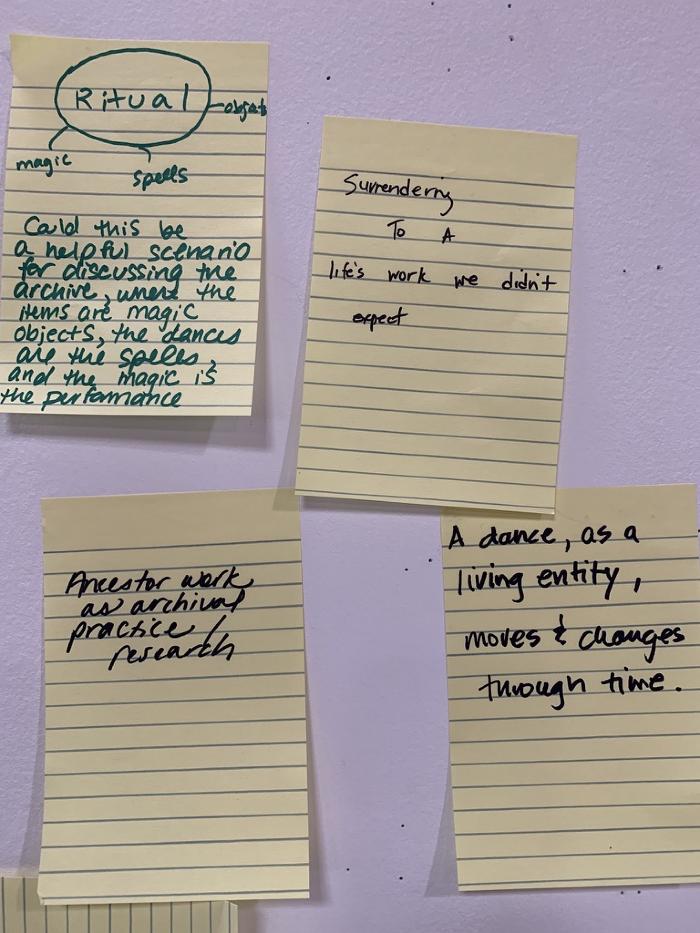 Ritual
objects
magic
spells
Could this be
a helpful scenario
for discussing the
archive, where the
items are magic
objects, the dances
are the spells,
and the magic is
the performance
Surrendering
To A
life's work we didn't
expect
Ancestor work
as archival
practice /
research
A dance, as a
living entity,
moves & changes
through time.